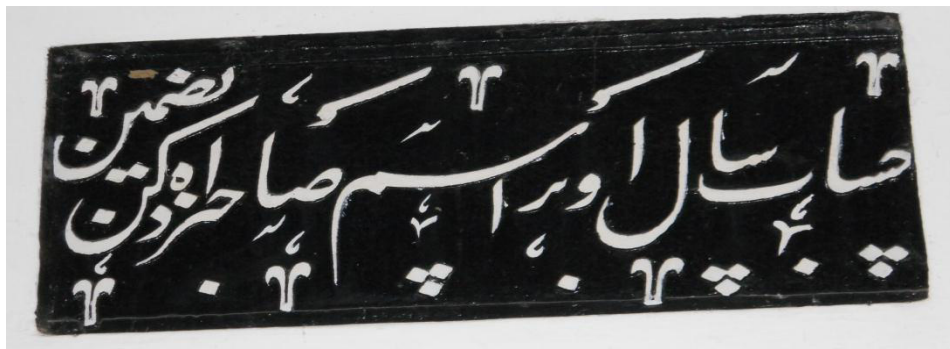 حساب سال او بر اسم صاحبزاده کن تضمین